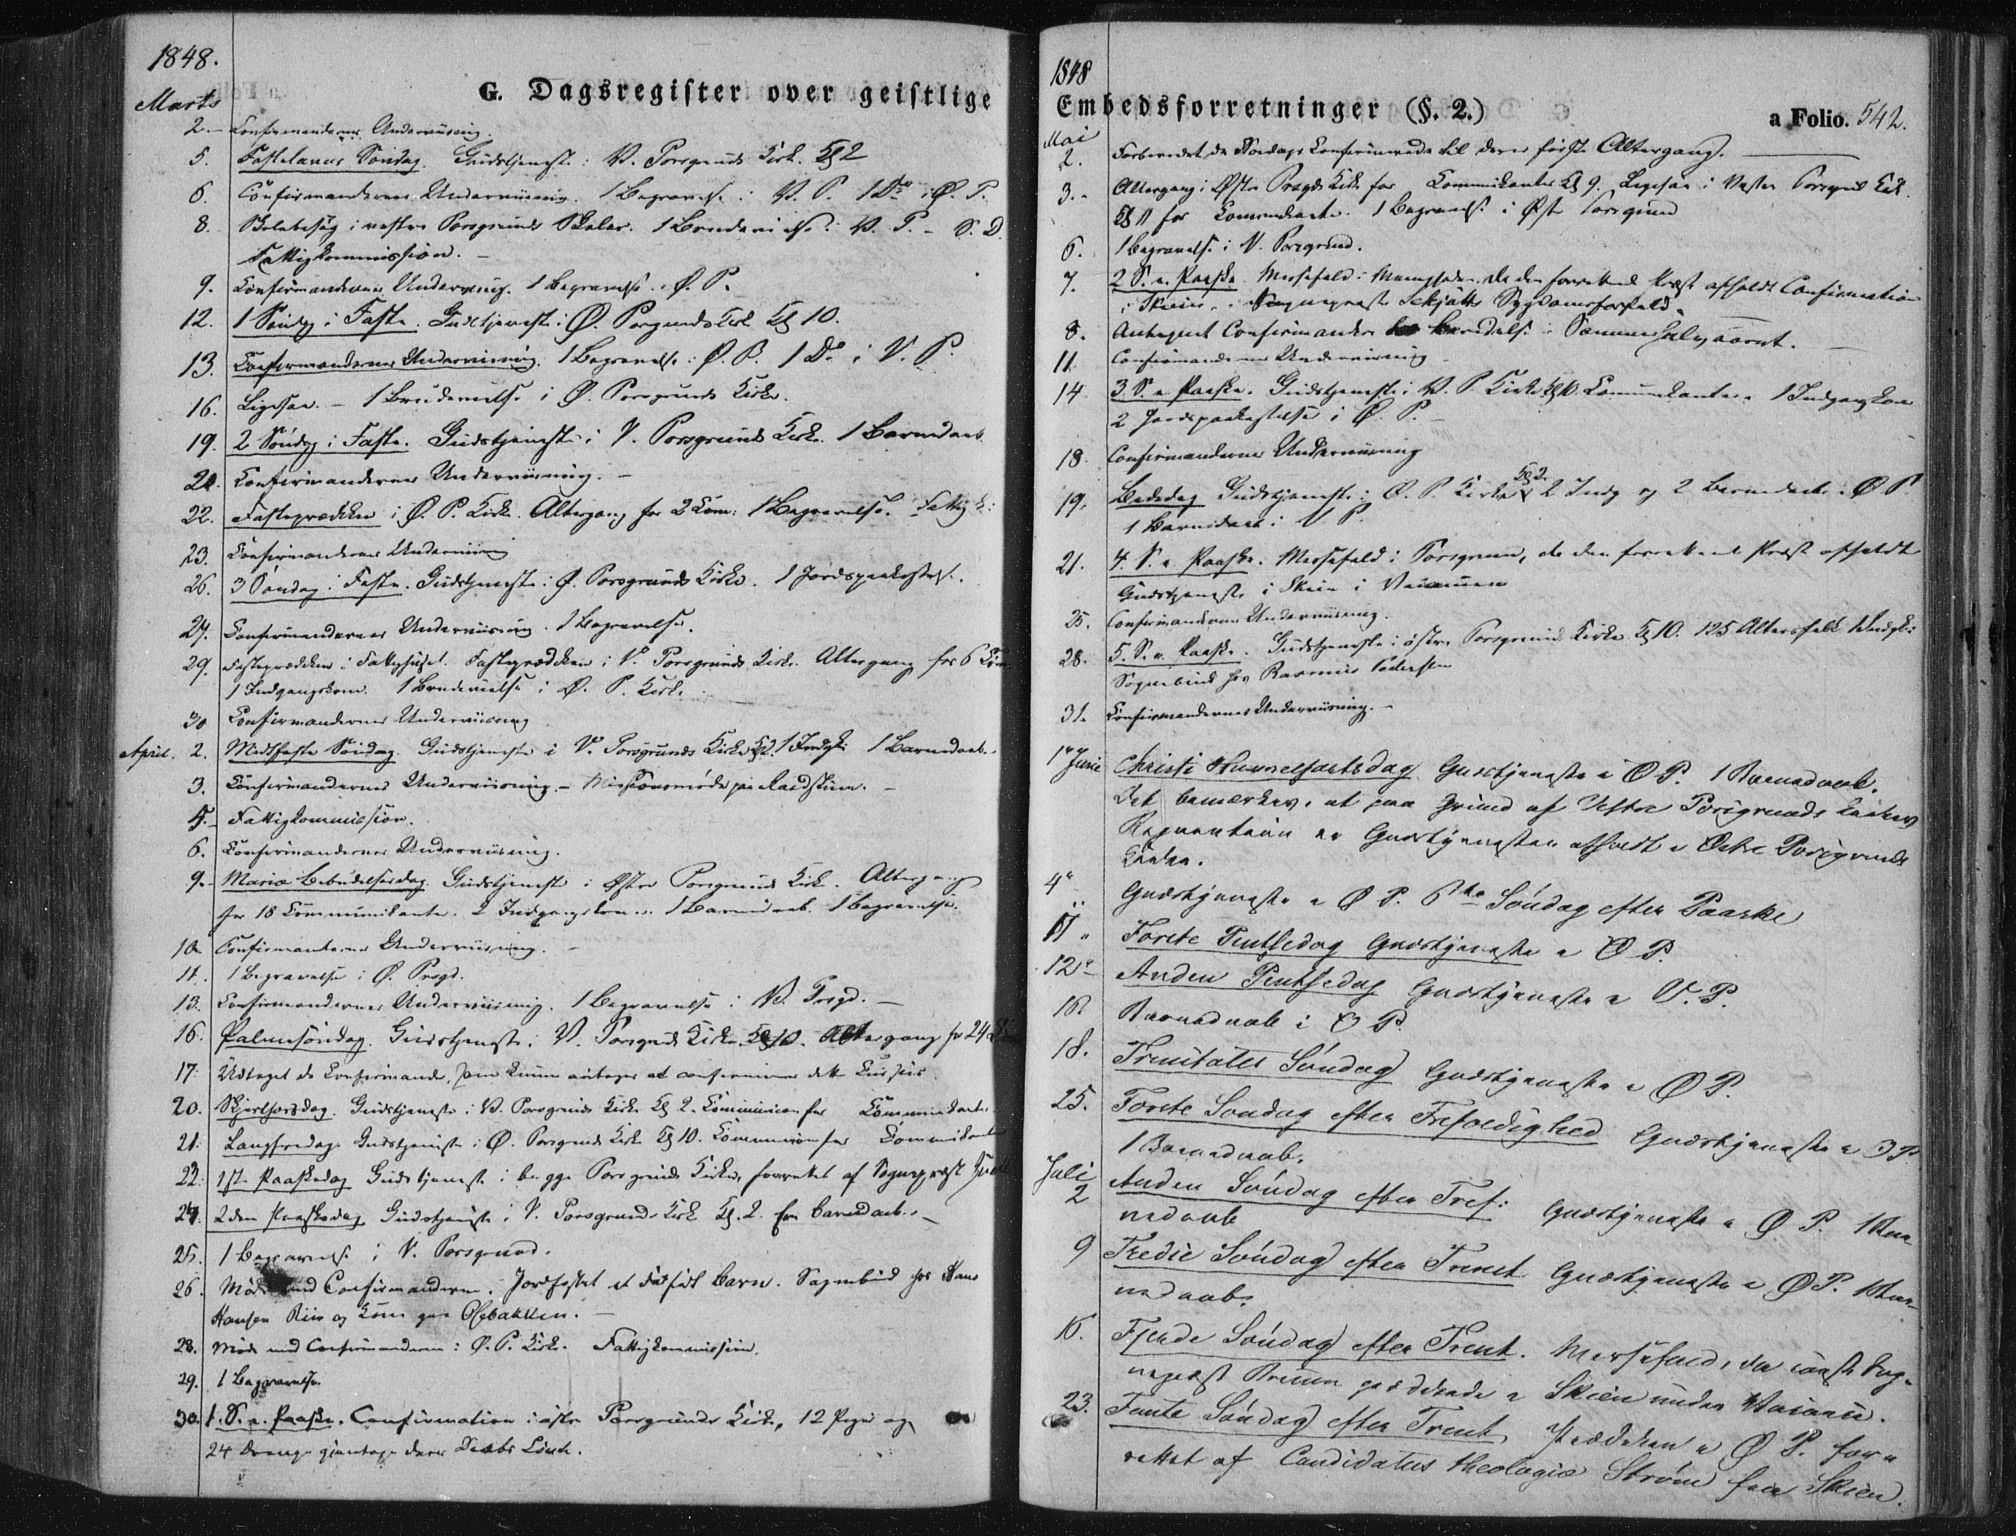 1848.
G. Dagsregister over geistlige
Marts
2. Confirmandernes Underviisning.
5. Fastelavns Søndag. Gudstjeneste i V. Porsgrunds Kirke Kl 2
6. Confirmandernes Underviisning. 1 Begravelse i V. P. 1 Do i Ø. P.
8. Skolebesøg i vestre Porsgrunds Skoler. 1 Brudevielse i V. P. - S. D.
Fattigkommission.
9. Confirmandernes Underviisning. 1 Begravelse i Ø. P.
12. 1 Søndg i Faste. Gudstjeneste i Ø. Porsgrunds Kirk Kl 10.
13. Confirmandernes Underviisning. 1 Begravelse i Ø. P. 1 Do i V. P.
16. Ligesaa. - 1 Brudevielse i Ø. Porsgrunds Kirke.
19. 2 Søndg i Faste. Gudstjeneste i V. Porsgrunds Kirke. 1 Barnedaab
20. Confirmandernes Underviisning.
22. Fasteprædiken i Ø. P. Kirke. Altergang for 2 Com: 1 Begravelse. Fattigk:
23. Confirmandernes Underviisning
26. 3 Søndag i Faste. Gudstjeneste i Ø. Porsgrunds Kirke. 1 Jordspaakastelse.
27. Confirmandernes Underviisning. 1 Begravelse.
29. Fasteprædiken i Fattighuset. Fasteprædiken i V. Porsgrunds Kirke. Altergang for 6 Com
1 Indgangskone. 1 Brudevielse i Ø. P. Kirke
30 Confirmandernes Underviisning
April. 2. Midfaste Søndag. Gudstjeneste i V. Porsgrunds Kirke Kl 2. 1 Indgk: 1 Barnedaab.
3. Confirmandernes Underviisning. - Missionsmøde paa Raadstuen. -
5. Fattigkommission.
6. Confirmandernes Underviisning.
9. Mariæ Bebudelsesdag. Gudstjeneste i Østre Porsgrunds Kirke. Altergang
for 18 Communikanter. 2 Indgangskoner. 1 Barnedaab. 1 Begravelse.
10. Confirmandernes Underviisning.
11. 1 Begravelse i Ø. Prsgd.
13. Confirmandernes Underviisning. 1 Begravelse i V. Prsgd.
16. Palmesøndag. Gudstjeneste i V. Porsgrunds Kirke. Kl 10. Altergang for 24 Com
17. Udtaget de Confirmander, som kunne antages at confirmeres dette Cursus.
20. Skjærthorsdag. Gudstjeneste i V. Porsgrunds Kirke Kl 2. Communion for Communikanter.
21. Langfredag. Gudstjeneste i Ø. Porsgrunds Kirke Kl 10. Communion for Communikanter
23. 1ste Paaskedag Gudstjeneste i begge Porsgrunds Kirker, forrettet af Sognepræst
24. 2den Paaskedag Gudstjeneste i V. Porsgrunds Kirk Kl. 2. En Barnedaab.
25. 1 Begravelse i V. Porsgrund.
26. Møde med Confirmanderne. Jordfæstet et Barn. Sognebud hos Hans
Hansen Riis og Kone paa
28. Møde med Confirmanderne i Ø. P. Kirke. Fattigkommission.
29. 1 Begravelse
30. 1. S. e. Paaske. Confirmation i østre Porsgrunds Kirke, 12 Piger og
24 Drenge gjentoge deres Daabs Løvte.
1848
Embedsforretninger (§. 2.)
a Folio. 542.
Mai
2. Forberedet de Søndags Confirmerede til deres første Altergang.
3. Altergang i Østre Prsgds Kirke for Kommunikanter Kl 9. Ligesaa i Vestre Porsgrund Kirk.
Kl 11 for Communikanter. 1 Begravelse i Østre Porsgrund
6. 1 Begravelse i V. Porsgrund.
7. 2 S. e. Paaske. Messefald i Menigheden, da den forrettende Præst afholdt Confirmation
i Skien, i Sognepræst Sygdomsforfald.
8. Antegnet Confirmander i Sommerhalvaaret.
11. Confirmandernes Underviisning
14. 3. S. e. Paaske. Gudstjeneste i V. P. Kirke Communikanter. 1 Indgangskone
2 Jordspaakastelse i Ø. P.
18. Confirmandernes Underviisning
19. Bededag Gudstjeneste i Ø. P. Kirke Kl 2. 2 Indg og 2 Barnedaab i Ø P.
1 Barnedaab i V P.
21. 4. S. e. Paaske. Messefald i Porsgrund, da den forrettende Præst afholdt
Gudstjeneste i Skien i Vacancen
25. Confirmandernes Underviisning.
28. 5. S. e. Paaske. Gudstjeneste i østre Porsgrunds Kirke Kl 10. 1 Indgk:
Sognebud hos Rasmus Pedersen
31. Confirmandernes Underviisning. -
1e Juni Christi Himmelfartsdag Gudstjeneste i Ø P. 1 Barnedaab.
Det bemærkes, at paa Grund af Vestre Porsgrunds Kirkes
Reparation er Gudstjenesten afholdt i Østre Porsgrunds
Kirke.
4e Gudstjeneste i Ø P. 6te Søndag efter Paaske
11 " Første Pintsedag Gudstjeneste i Ø P.
12e Anden Pintsedag Gudstjeneste i V. P.
Barnedaab i Ø P.
18. Trinitatis Søndag Gudstjeneste i Ø P.
25. Første Søndag efter Trefoldighed Gudstjeneste i Ø P.
1 Barnedaab.
Juli
2 Anden Søndag efter Tref: Gudstjeneste i Ø P. 1 Bar-
nedaab
9 Tredie Søndag efter Trinit Gudstjeneste i Ø P. 1 Bar-
nedaab.
16. Fjerde Søndag efter Trinit. Messefald, da
Bruun prædikede i Skien under Vacance.
23. Femte Søndag efter Trinit Prædiken i Ø P. for-
rettet af Candidatus theologiæ Strøm fra Skien.